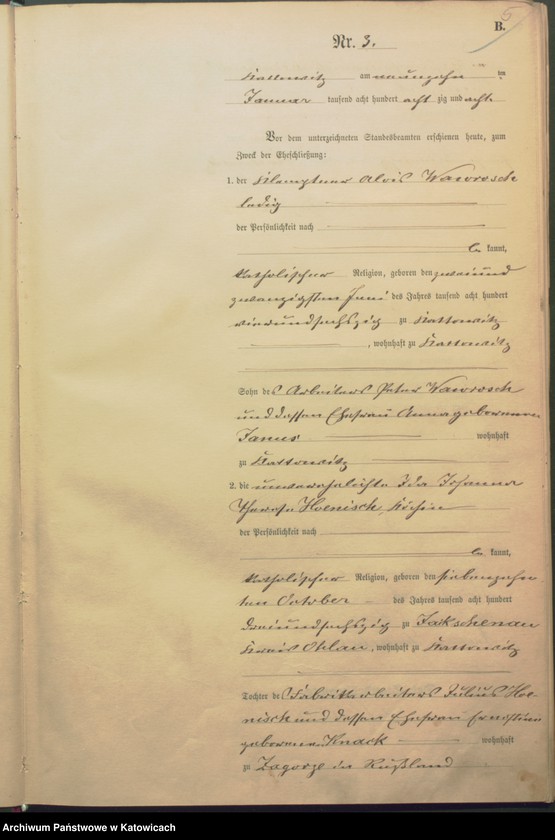 B.
Nr. 3.
Kattowitz am neunzehnten
Januar tausend acht hundert acht zig und acht.
Vor dem unterzeichneten Standesbeamten erschienen heute, zum
Zweck der Eheschließung:
1. der Klemptner Alois Waworosch
ledig
der Persönlichkeit nach
be kannt,
katholischer Religion, geboren den zweiund
zwanzigsten Juni des Jahres tausend acht hundert
vierundsechszig zu Kattowitz
, wohnhaft zu Kattowitz
Sohn des Arbeiters Peter Waworosch
und dessen Ehefrau Anna geborenen
Janus wohnhaft
zu Kattowitz
2. die unverehelichte Ida Johanna
Therese Hoenisch, Köchin
der Persönlichkeit nach
be kannt,
katholischer Religion, geboren den siebenzehn
ten October des Jahres tausend acht hundert
dreiundsechszig zu Jakschenau
Kreis Ohlau, wohnhaft zu Kattowitz
Tochter des Fabrikarbeiters Julius Hoe-
nisch und dessen Ehefrau Ernstine
geborenen Knack wohnhaft
zu Zagorze in Rußland
Archiwum Państwowe w Katowicach